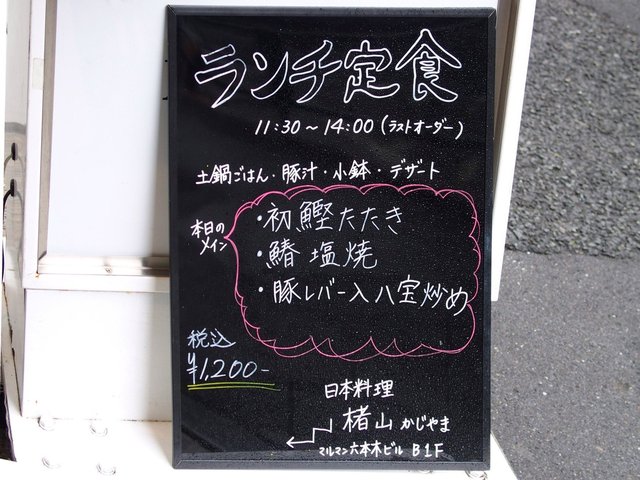 ランチ定食
11:30～14:00(ラストオーダー)
土鍋ごはん・豚汁・小鉢・デザート
本日の
メイン
・初鰹たたき
・鰆塩焼
・豚レバー入八宝炒め
税込
¥1,200-
日本料理
楮山 かじやま
マルマン六本木ビル B1F